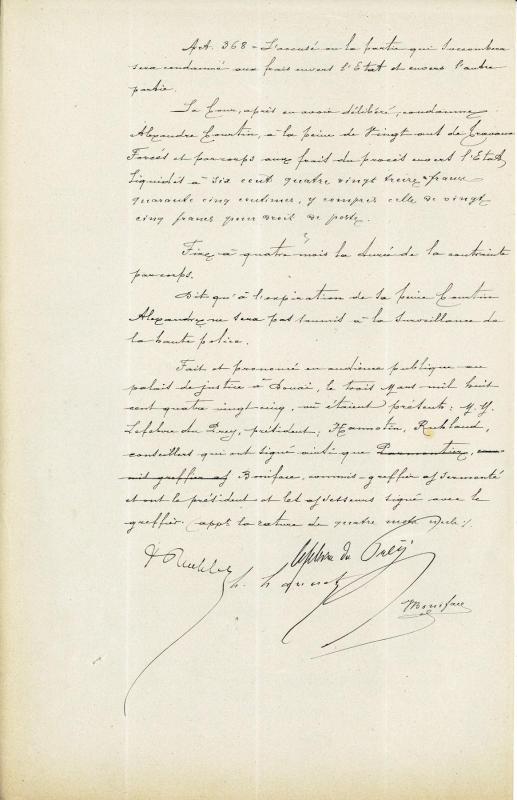 Art. 368 - L'accusé ou la partie qui succombera
sera condamné aux frais envers l'Etat et envers l'autre
partie.
La Cour, après en avoir délibéré, condamne
Alexandre Courtin, à la peine de Vingt ans de Travaux
Forcés et par corps aux frais du procès envers l'Etat,
liquidés à six cent quatre vingt treize francs
quarante cinq centimes, y compris celle de vingt
cinq francs pour droit de poste.
Fixe à quatre mois la durée de la contrainte
par corps.
Dit qu'à l'expiration de sa peine Courtin
Alexandre ne sera pas soumis à la surveillance de
la haute police.
Fait et prononcé en audience publique au
palais de justice à Douai, le trois Mars mil huit
cent quatre vingt-cinq, où étaient présents: M.M.
Lefebvre du Preÿ, président, Hannotin,
conseillers qui ont signé ainsi que Parmentier, com-
mis greffier as Boniface, commis-greffier assermenté
et ont le président et les assesseurs signé avec le
greffier. appr. la rature de quatre mots nuls.
Lefebvre du Preÿ
Boniface